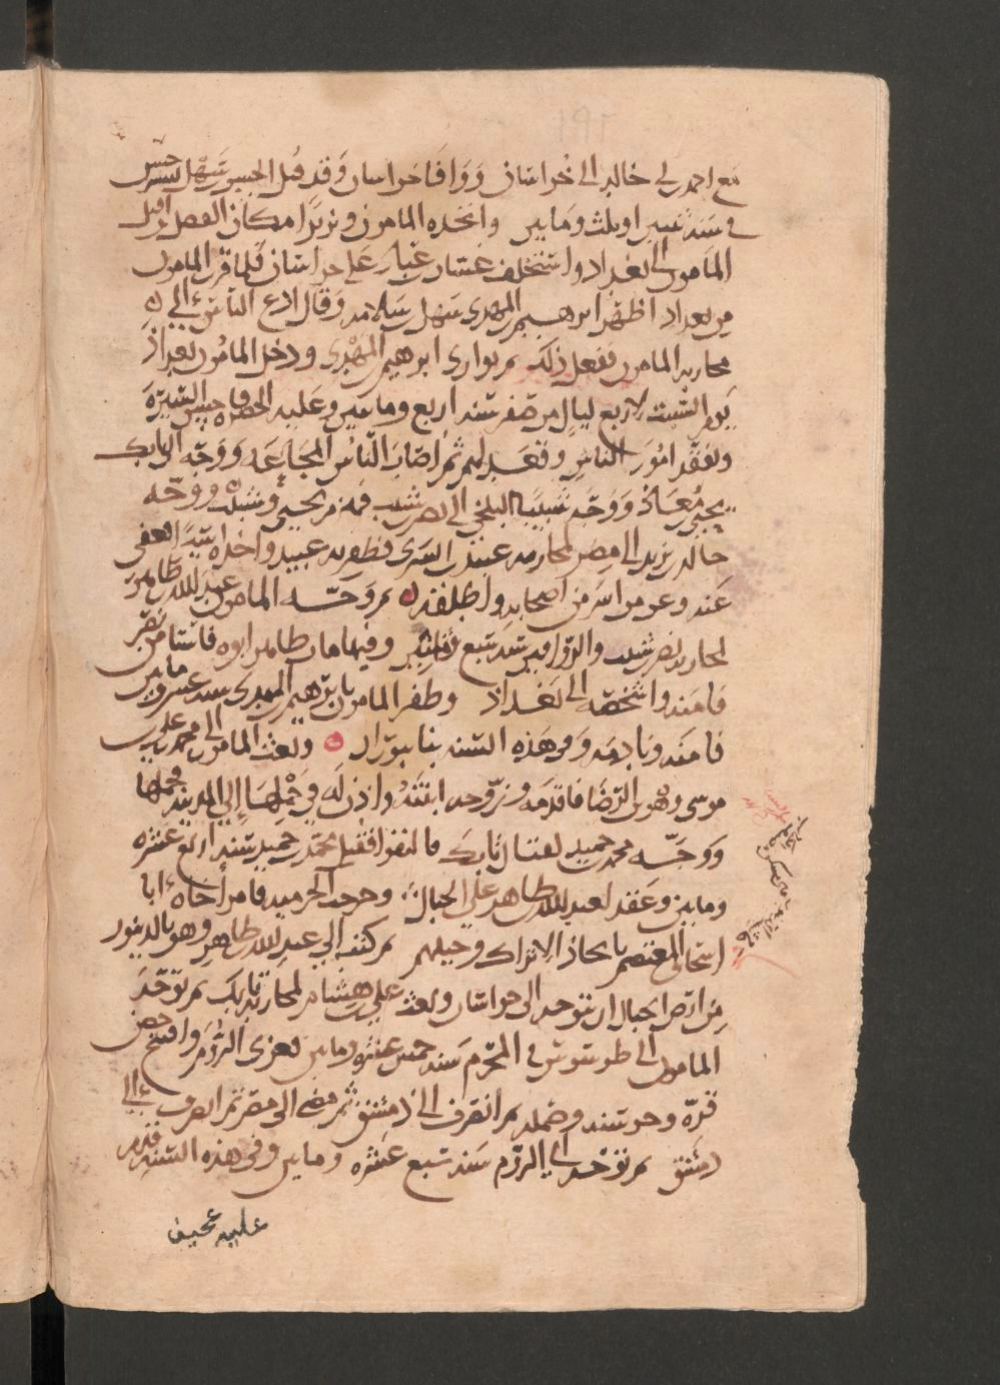 مع احمد بن ابي خالد الى خراسان ووافا خراسان وقد قبل الحسن بن سهل
في سنة اثنين او ثلث ومايتين واتخذه المامون وزيرا مكان الفضل ثم اقبل
المامون الى بغداد واستخلف غسان بن عباد على خراسان فلما قرب المامون
من بغداد اظهر ابرهيم بن المهدي سهل بن سلامه وقال ادع الناس الى
محاربة المامون ففعل ذلك ثم توارى ابرهيم بن المهدي ودخل المامون بغداد
يوم السبت لاربع ليال من صفر سنة اربع ومايتين وعليه الخضرة فاحسن السيرة
وتفقد امور الناس وقعد لهم ثم اصاب الناس المجاعه ووجه الى بابك
يحيى بن معاذ ووجه شبيبا البلخي الى نصر بن شبث فهزم يحيى وشبيب ووجه
خالد بن يزيد الى مصر لمحاربة عبيد بن السري فظفر به عبيد واخذه اسيرا فعفى
عنه وعن من اسر من اصحابه واطلقه ثم وجه المامون عبدالله بن طاهر
لمحاربة نصر بن شبث والزواقيل سنة سبع ومايتين وفيها مات طاهر ابوه فاستامن نصر
فامنه واشخصه الى بغداد وظفر المامون بابرهيم بن المهدي سنة عشر ومايتين
فامنه ونادمه وفي هذه السنه بنا ببوران وبعث المامون الى محمد بن علي بن
موسى وهو بن الرضا فاقدمه وزوجه ابنته واذن له في حملها إلى المدينه فحملها
ووجه محمد بن حميد لقتال بابك فالتقوا فقتل محمد بن حميد سنة اربع عشره
ومايتين وعقد لعبدالله بن طاهر على الجبال وخرجت الخرميه فامر اخاه ابا
اسحاق المعتصم باتخاذ الاتراك وجلبهم ثم كتب إلى عبدالله بن طاهر وهو بالدينور
من ارض الجبال ان يتوجه الى خراسان وبعث علي بن هشام لمحاربة بابك ثم توجه
المامون الى طرسوس في المحرم سنة خمس عشره ومايتين لغزى الروم وافتتح حصن
قرة وخرشنه وصمله ثم انصرف الى دمشق ثم مضى الى مصر ثم انصرف الى
دمشق ثم توجه الى الروم سنة سبع عشره ومايتين وفي هذه السنه قدم
عليه عجيف